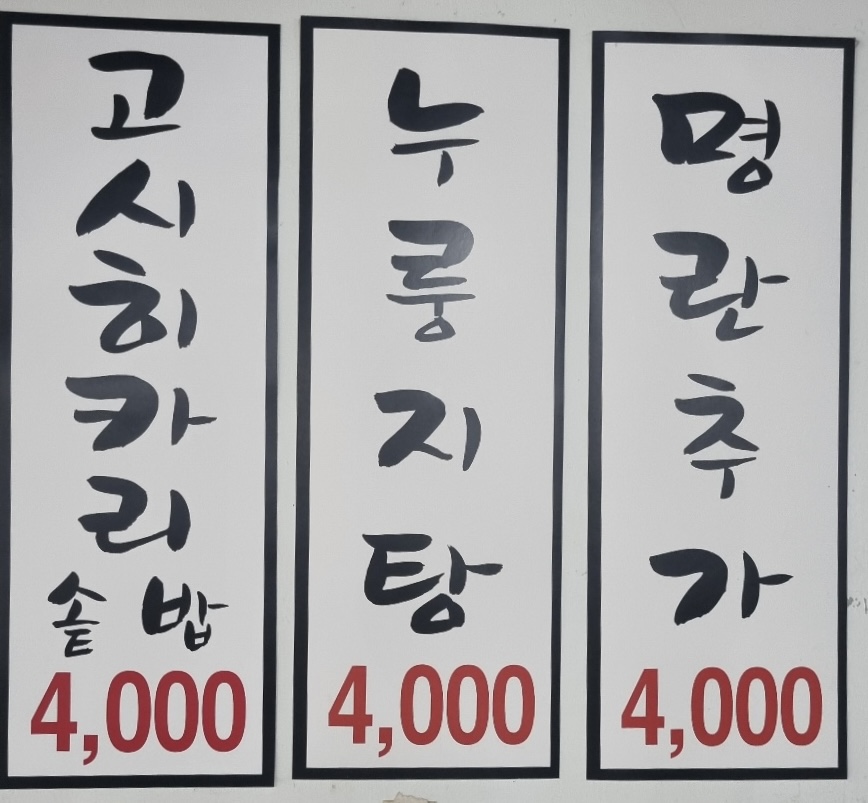 고시히카리
솥밥
4,000
누룽지탕
4,000
명란추가
4,000